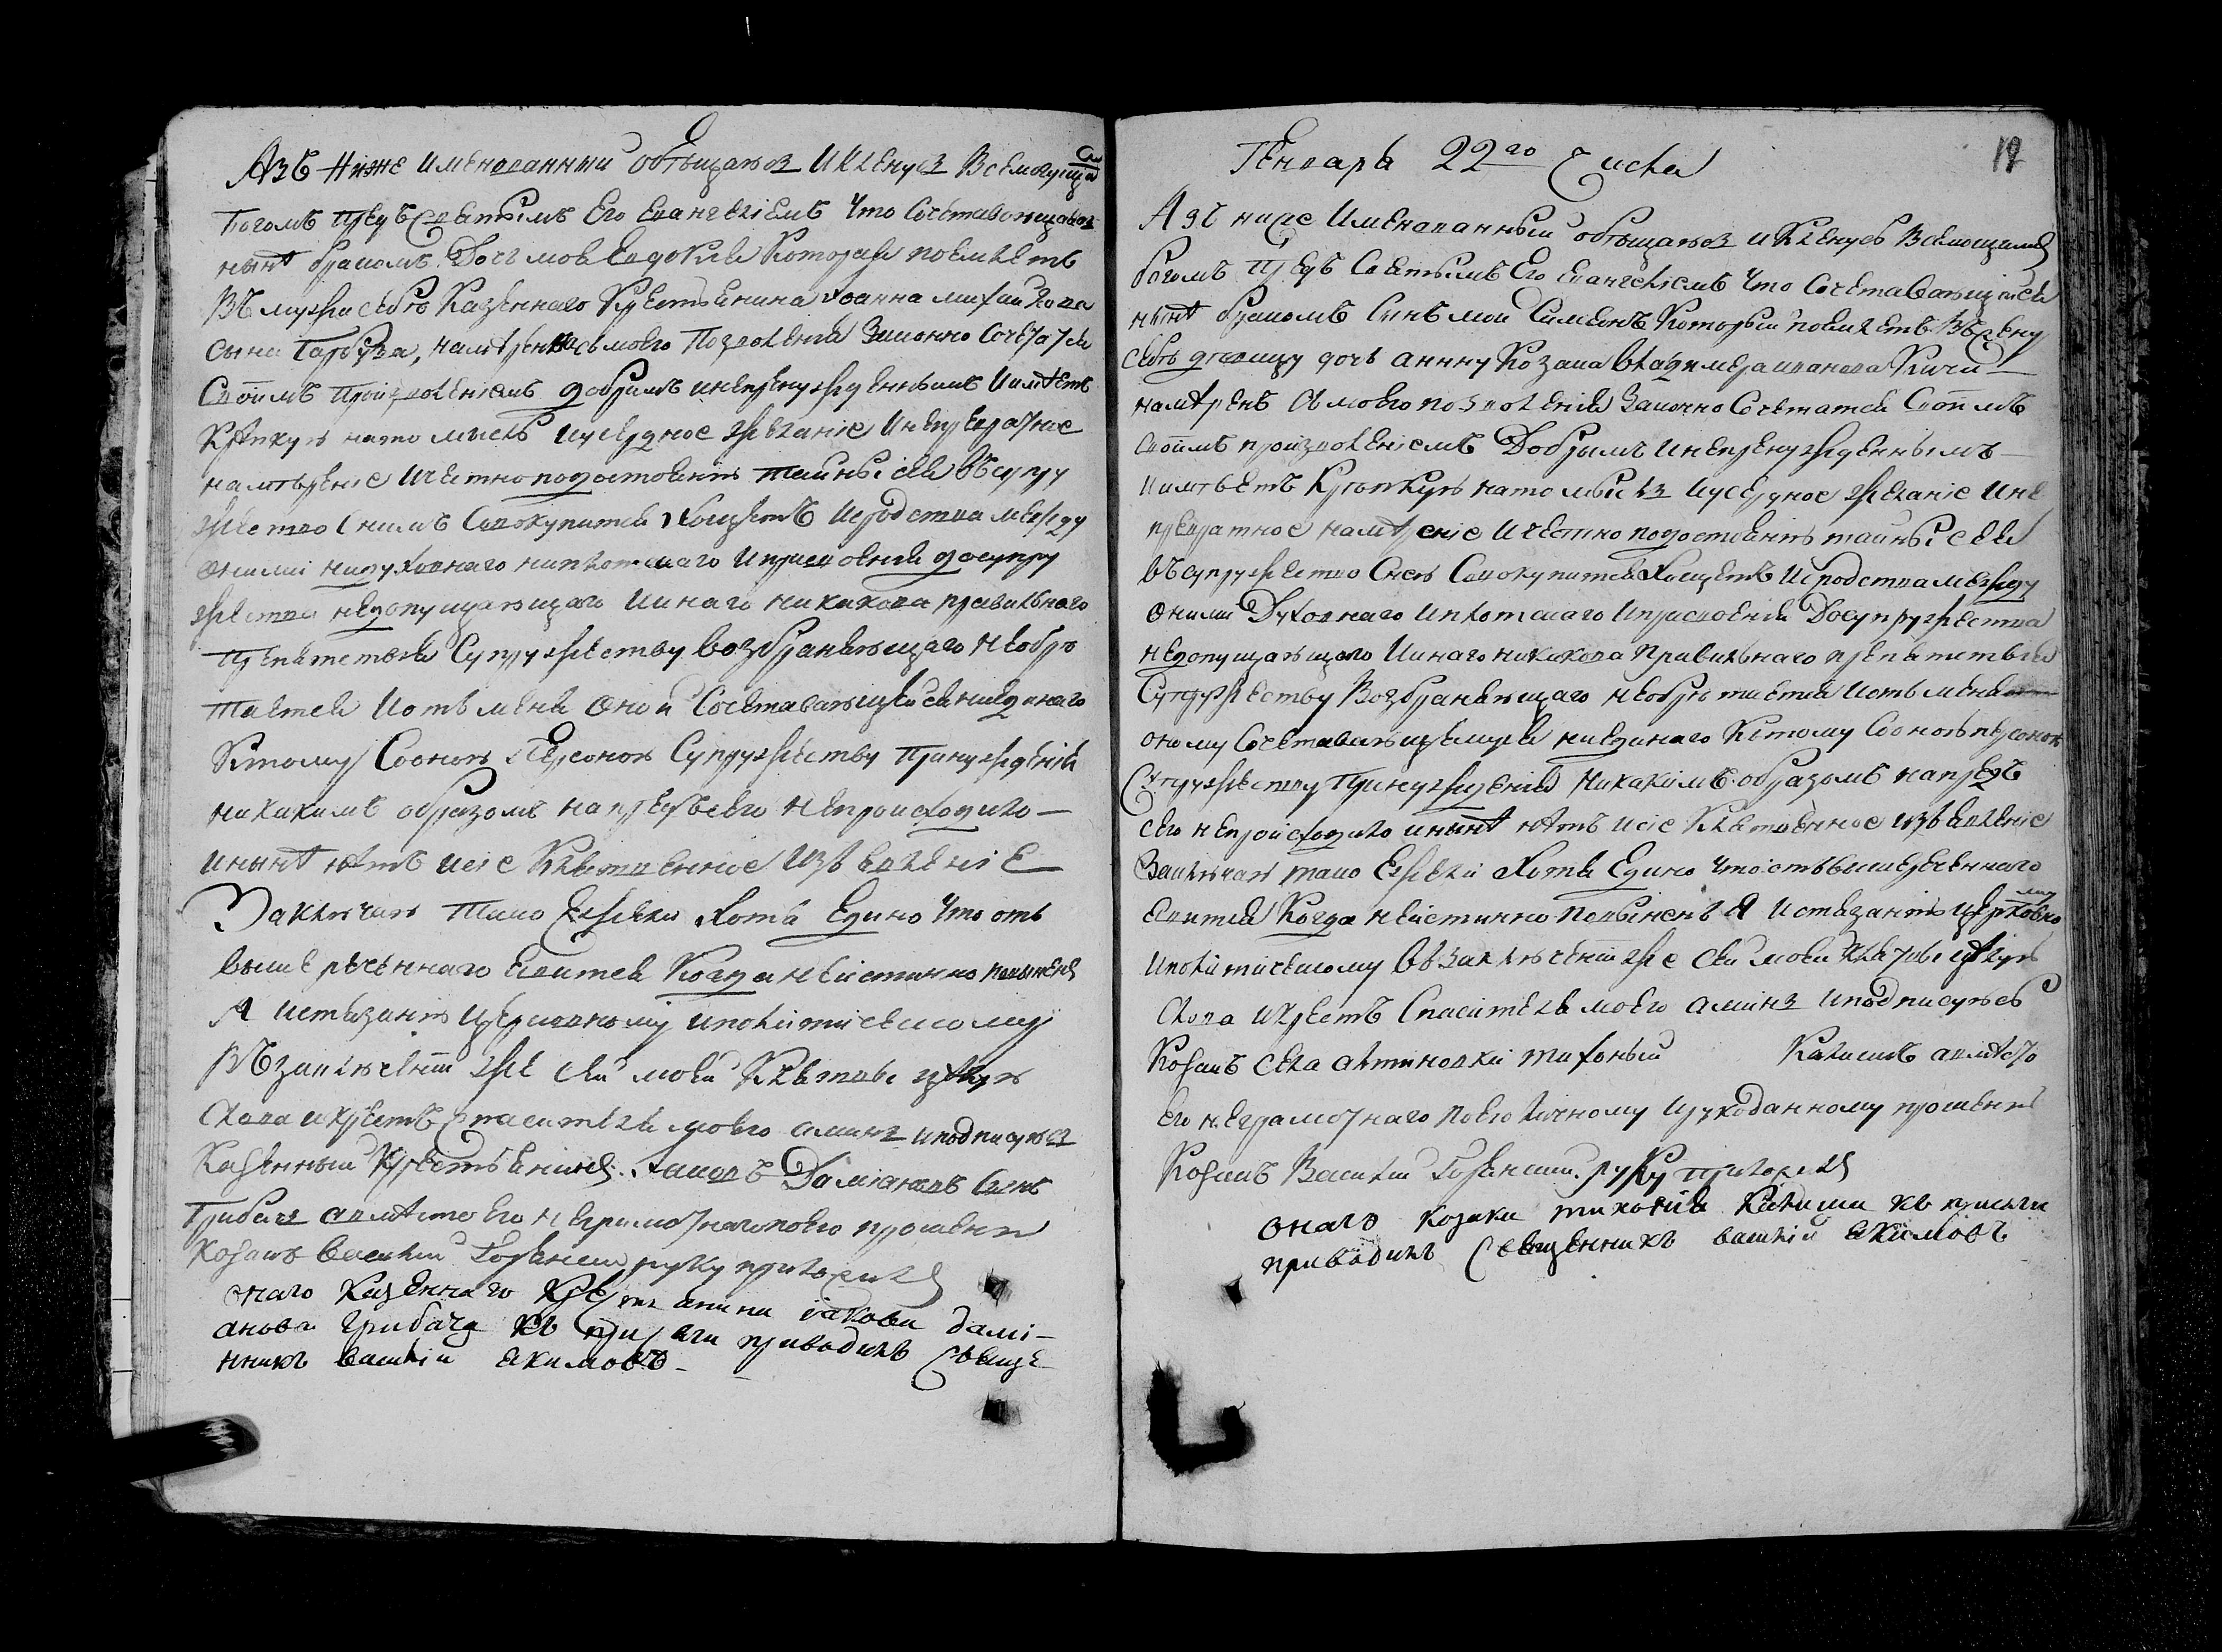 Азъ Ниже имянованный обѣщаюсь и кленусь всемогущим
богомъ предъ святымъ Его евангелиемъ что сочетавающаясь
нынѣ бракомъ дочь моя Евдокия которая поемлеть
въ мужи себѣ казенного крестьянина Иоанна Михайлова
сына Гарбуза, намѣренна съ моего позволения законно сочетатся
своимъ произволениемъ добримъ и непренужденнымъ и имѣеть
крѣпкую на то мысль и усердное желание и непревратное
намѣрение и честно по достоянию тайны сея въ супру
жество с нимъ совокупится хощеть и сродства между
оними ни духовнаго ни плотскаго и присвоения до супру
жества недопущающаго и инаго никакова правильнаго
препятствия супружеству возбраняющаго не обрѣ
тается и отъ меня оной сочетавающейся ни единаго
к тому с оною персоною супружеству принуждения
никакимъ образомъ напредъ сего не происходило —
и нынѣ нѣтъ и сие клятвенное изъявление
Заключаю тако ежели хотя едино что отъ
вышереченнаго явится когда неистинно повиненъ
я истязанию церковному и политическому
въ заключении же сей моей клятвы цѣлую
слова и крестъ спасителя моего аминь и подписуюсь
Казенный крестьянинъ Іаковъ Даміановъ сынъ
Грибачъ а вмѣсто его неграмотнаго по его прошению
козакъ Василий руку приложилъ
онаго казеннаго крестьянина іакова дамі-
анова грибача къ присяги приводилъ свяще-
нникъ василій якимовъ -
Генваря 22го Числа
12
Азъ ниже имянованный обѣщаюсь и кленусь всемощимъ
богомъ предъ святымъ Его евангелиемъ что сочетавающийся
нынѣ бракомъ синъ мой Симеонъ который поемлетъ въ жену
себѣ дѣвицу дочь Анну козака Владимера Иванова
намѣренъ съ моего позволения законно сочетатся своимъ
своимъ произволениемъ добримъ и непренужденнымъ —
и имѣетъ крѣпкую на то мысль и усердное желание и не
превратное намѣрение и честно по достоянию тайны сея
въ супружество с нею совокупится хощетъ и сродства между
оними духовнаго и плотскаго и присвоения до супружества
недопущающаго и инаго никакова правильнаго препятствия
супружеству возбраняющаго не обрѣтается и отъ меня
оному сочетавающемуся ни единаго к тому с оною персоною
супружеству принуждения никакимъ образомъ напредъ
сего не происходило и нынѣ нѣтъ и сие клятвенное изъявление
заключаю тако ежели хотя едино что отъ вышереченнаго
явится когда неистинно повиненъ я истязанию церковно
му
и политическому въ заключении же сей моей клятвы цѣлую
слова и крестъ спасителя моего аминь и подписуюсь
Козакъ села Алтиновки Тихоный а вмѣсто
его неграмотнаго по его личному и рукоданному прошению
козакъ Василий руку приложилъ
онаго козака тихонія къ присяги
приводилъ священникъ василій якимовъ